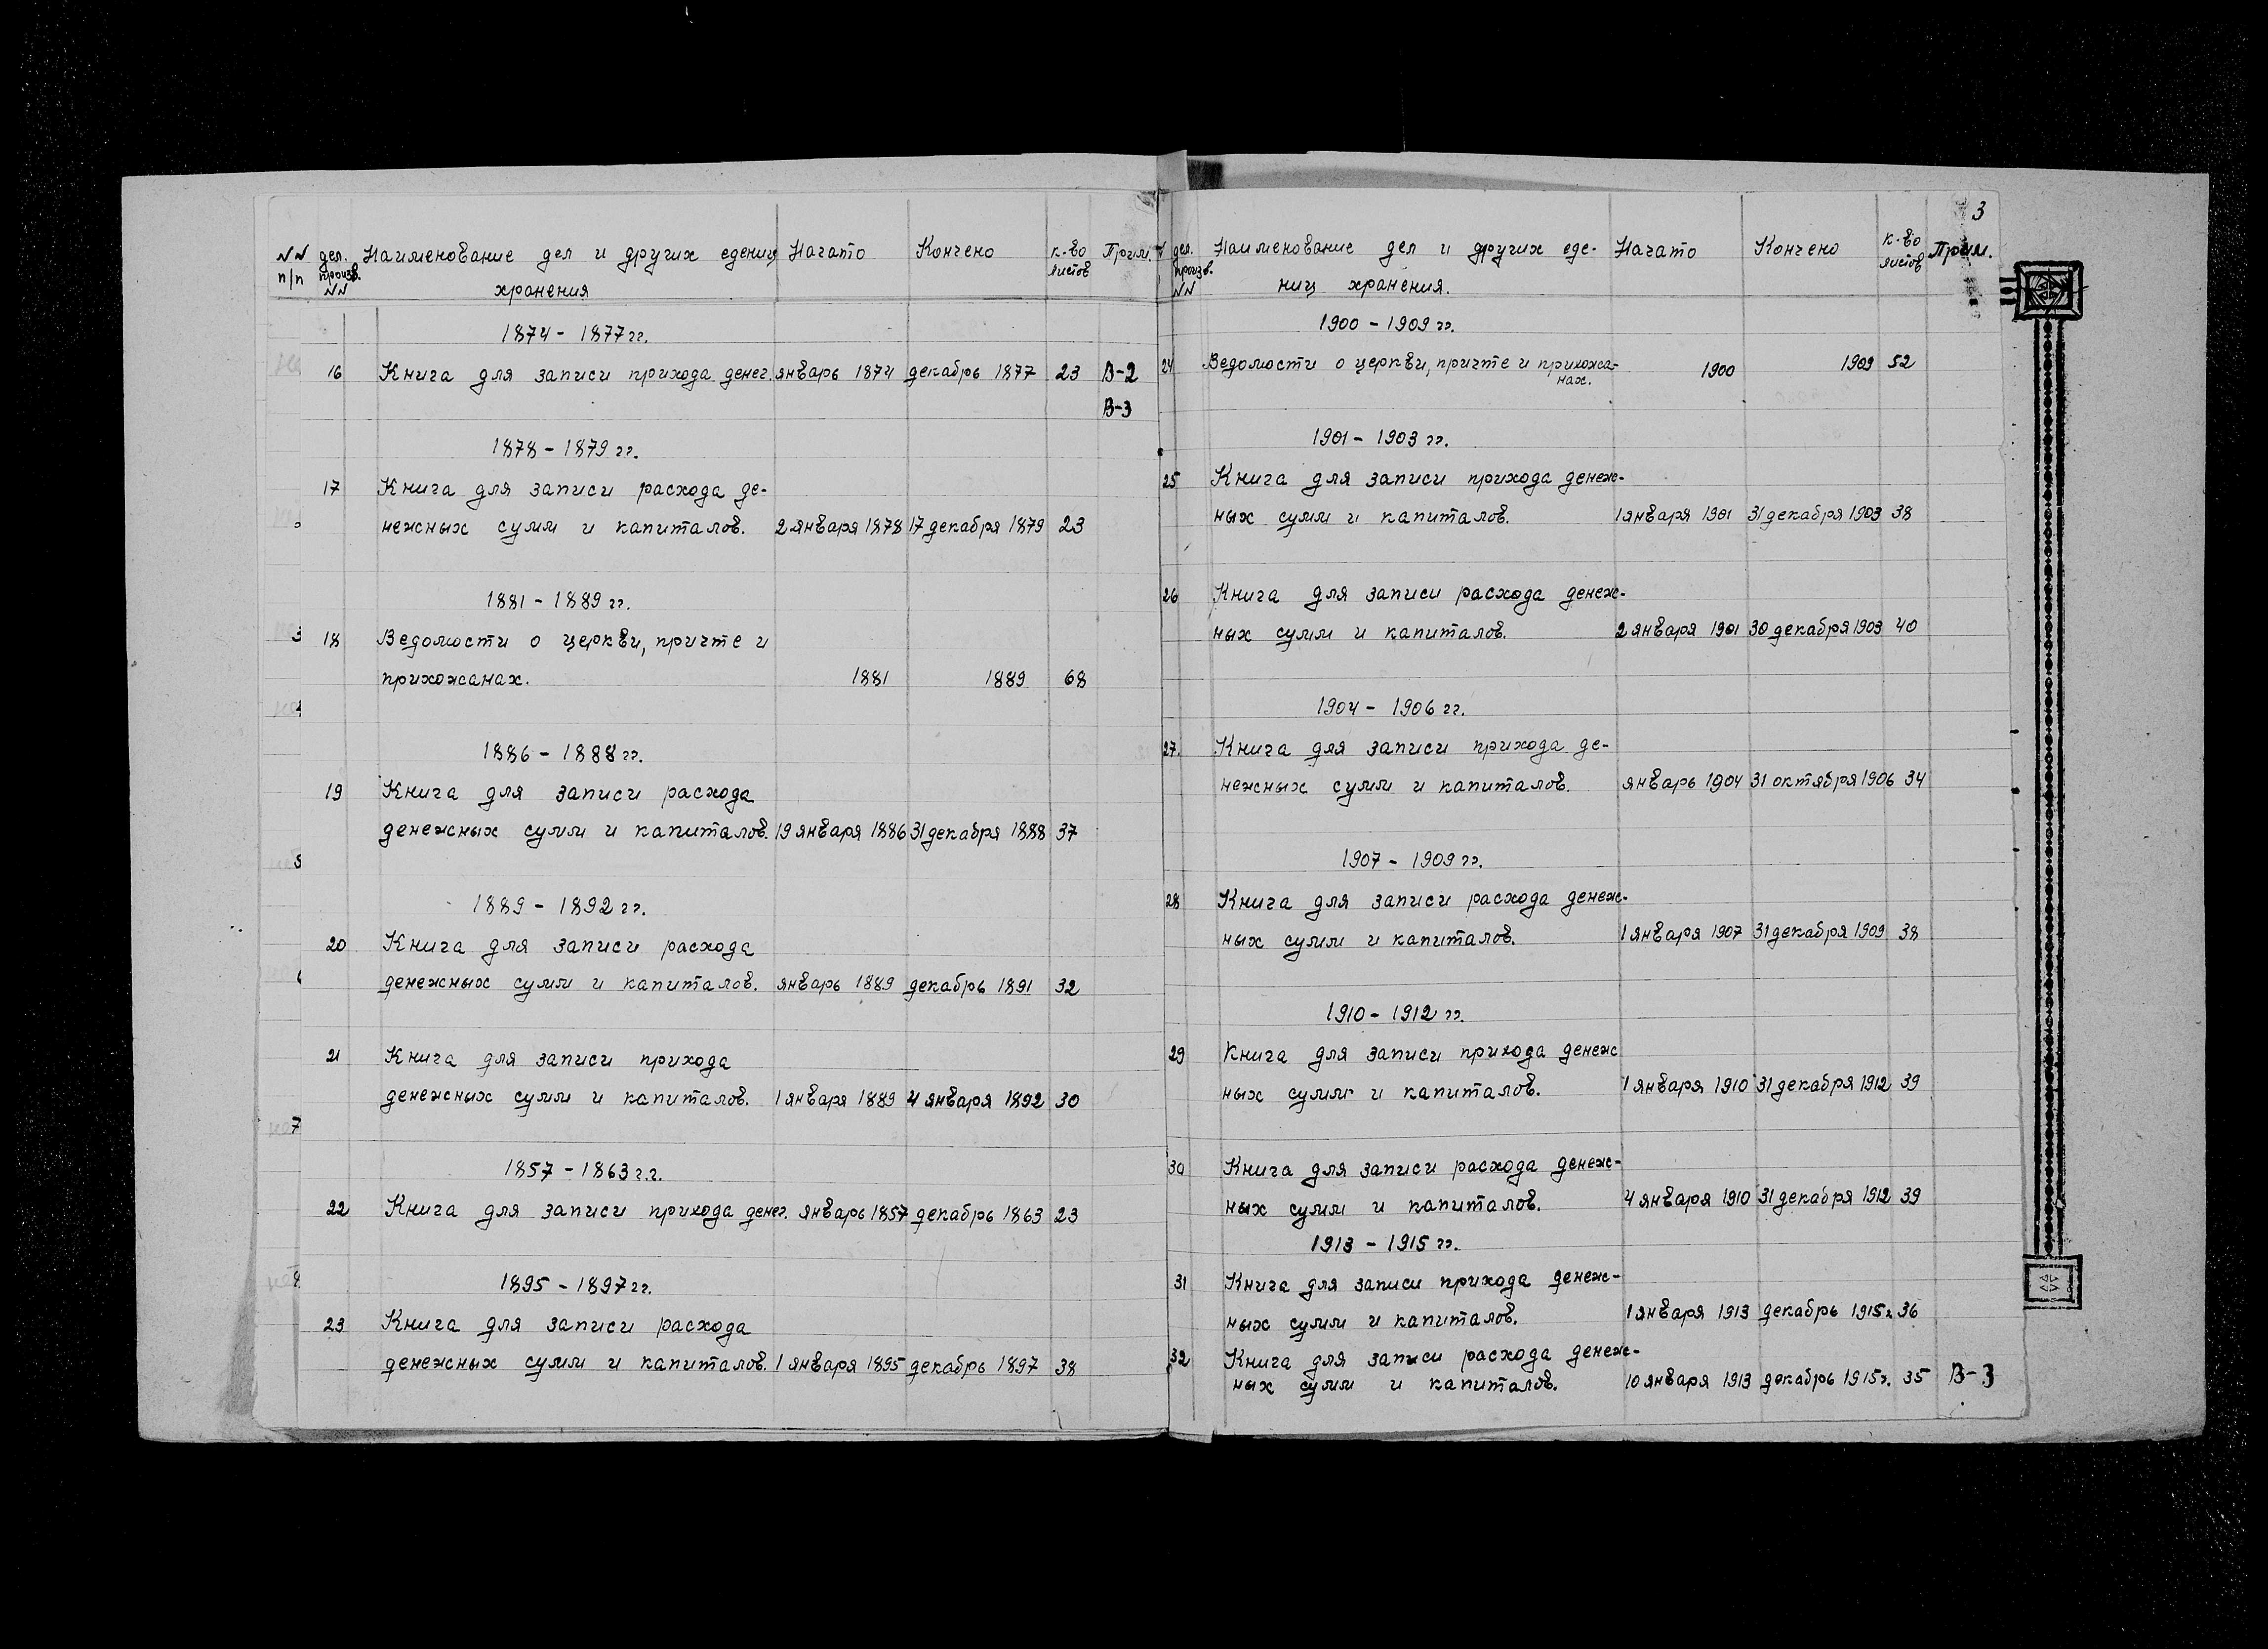 NN дел. Наименование дел и других единиц Начато Кончено к-во Прим.
п/п произв. хранения листов
NN
1874 - 1877 гг.
16 Книга для записи прихода денег. январь 1874 декабрь 1877 23 В-2
В-3
1878 - 1879 гг.
17 Книга для записи расхода де-
нежных сумм и капиталов. 2 января 1878 17 декабря 1879 23
1881 - 1889 гг.
18 Ведомости о церкви, причте и
прихожанах. 1881 1889 68
1886 - 1888 гг.
19 Книга для записи расхода
денежных сумм и капиталов. 19 января 1886 31 декабря 1888 37
1889 - 1892 гг.
20 Книга для записи расхода
денежных сумм и капиталов. январь 1889 декабрь 1891 32
21 Книга для записи прихода
денежных сумм и капиталов. 1 января 1889 4 января 1892 30
1857 - 1863 г.г.
22 Книга для записи прихода денег. январь 1857 декабрь 1863 23
1895 - 1897 гг.
23 Книга для записи расхода
денежных сумм и капиталов. 1 января 1895 декабрь 1897 38
3
дел. Наименование дел и других еде- Начато Кончено к-во Прим.
произв. ниц хранения. листов
NN
1900 - 1909 гг.
24 Ведомости о церкви, причте и прихожа- 1900 1909 52
нах.
1901 - 1903 гг.
25 Книга для записи прихода денеж-
ных сумм и капиталов. 1 января 1901 31 декабря 1903 38
26 Книга для записи расхода денеж-
ных сумм и капиталов. 2 января 1901 30 декабря 1903 40
1904 - 1906 гг.
27. Книга для записи прихода де-
нежных сумм и капиталов. январь 1904 31 октября 1906 34
1907 - 1909 гг.
28 Книга для записи расхода денеж-
ных сумм и капиталов. 1 января 1907 31 декабря 1909 38
1910 - 1912 гг.
29 Книга для записи прихода денеж
ных сумм и капиталов. 1 января 1910 31 декабря 1912 39
30 Книга для записи расхода денеж-
ных сумм и капиталов. 4 января 1910 31 декабря 1912 39
1913 - 1915 гг.
31 Книга для записи прихода денеж-
ных сумм и капиталов. 1 января 1913 декабрь 1915 г. 36
32 Книга для записи расхода денеж-
ных сумм и капиталов. 10 января 1913 декабрь 1915 г. 35 В-3